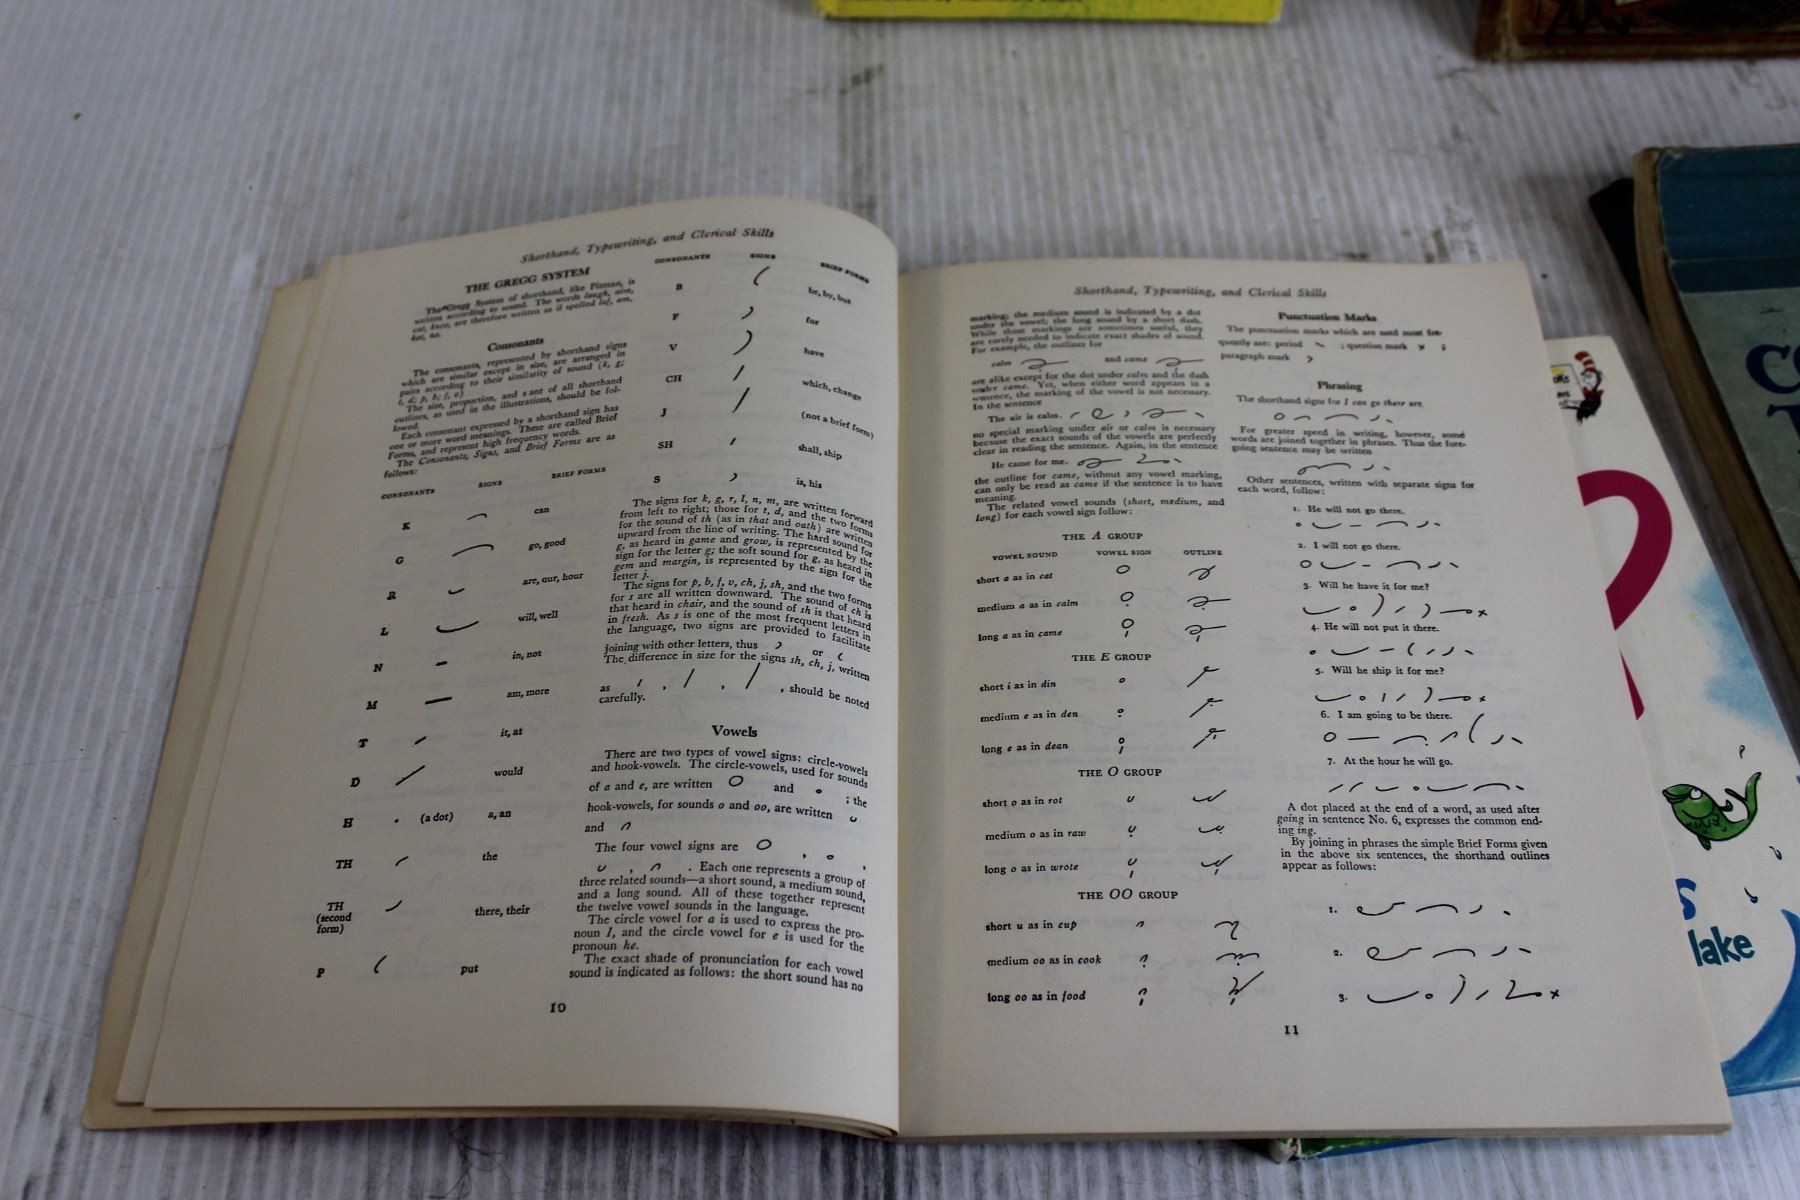 Shorthand, Typewriting, and Clerical Skills
THE GREGG SYSTEM
The Gregg System of shorthand, like Pitman, is
written according to sound. The words laugh, aim,
cat, knee, are therefore written as if spelled laf, am,
kat, ne.
Consonants
The consonants, represented by shorthand signs
which are similar except in size, are arranged in
pairs according to their similarity of sound (k, g;
t, d; p, b; f, v)
The size, proportion, and slant of all shorthand
outlines, as used in the illustrations, should be fol-
lowed.
Each consonant expressed by a shorthand sign has
one or more word meanings. These are called Brief
Forms, and represent high frequency words.
The Consonants, Signs, and Brief Forms are as
follows:
CONSONANTS SIGNS BRIEF FORMS
K can
G go, good
R are, our, hour
L will, well
N in, not
M am, more
T it, at
D would
H (a dot) a, an
TH the
TH
(second
form) there, their
P put
CONSONANTS SIGNS BRIEF FORMS
B be, by, but
F for
V have
CH which, change
J (not a brief form)
SH shall, ship
S is, his
The signs for k, g, r, l, n, m, are written forward
from left to right; those for t, d, and the two forms
for the sound of th (as in that and oath) are written
upward from the line of writing. The hard sound for
g, as heard in game and grow, is represented by the
sign for the letter g; the soft sound for g, as heard in
gem and margin, is represented by the sign for the
letter j.
The signs for p, b, f, v, ch, j, sh, and the two forms
for s are all written downward. The sound of ch is
that heard in chair, and the sound of sh is that heard
in fresh. As s is one of the most frequent letters in
the language, two signs are provided to facilitate
joining with other letters, thus or
The difference in size for the signs sh, ch, j, written
as , , , should be noted
carefully.
Vowels
There are two types of vowel signs: circle-vowels
and hook-vowels. The circle-vowels, used for sounds
of a and e, are written and ; the
hook-vowels, for sounds o and oo, are written
and
The four vowel signs are , ,
, . Each one represents a group of
three related sounds—a short sound, a medium sound,
and a long sound. All of these together represent
the twelve vowel sounds in the language.
The circle vowel for a is used to express the pro-
noun I, and the circle vowel for e is used for the
pronoun he.
The exact shade of pronunciation for each vowel
sound is indicated as follows: the short sound has no
10
Shorthand, Typewriting, and Clerical Skills
marking; the medium sound is indicated by a dot
under the vowel; the long sound by a short dash.
While these markings are sometimes useful, they
are rarely needed to indicate exact shades of sound.
For example, the outlines for
calm and came
are alike except for the dot under calm and the dash
under came. Yet, when either word appears in a
sentence, the marking of the vowel is not necessary.
In the sentence
The air is calm.
no special marking under air or calm is necessary
because the exact sounds of the vowels are perfectly
clear in reading the sentence. Again, in the sentence
He came for me.
the outline for came, without any vowel marking,
can only be read as came if the sentence is to have
meaning.
The related vowel sounds (short, medium, and
long) for each vowel sign follow:
THE A GROUP
VOWEL SOUND VOWEL SIGN OUTLINE
short a as in cat
medium a as in calm
long a as in came
THE E GROUP
short i as in din
medium e as in den
long e as in dean
THE O GROUP
short o as in rot
medium o as in raw
long o as in wrote
THE OO GROUP
short u as in cup
medium oo as in cook
long oo as in food
Punctuation Marks
The punctuation marks which are used most fre-
quently are: period ; question mark ;
paragraph mark
Phrasing
The shorthand signs for I can go there are
For greater speed in writing, however, some
words are joined together in phrases. Thus the fore-
going sentence may be written
Other sentences, written with separate signs for
each word, follow:
1. He will not go there.
2. I will not go there.
3. Will he have it for me?
4. He will not put it there.
5. Will he ship it for me?
6. I am going to be there.
7. At the hour he will go.
A dot placed at the end of a word, as used after
going in sentence No. 6, expresses the common end-
ing ing.
By joining in phrases the simple Brief Forms given
in the above six sentences, the shorthand outlines
appear as follows:
1.
2.
3.
11
lake